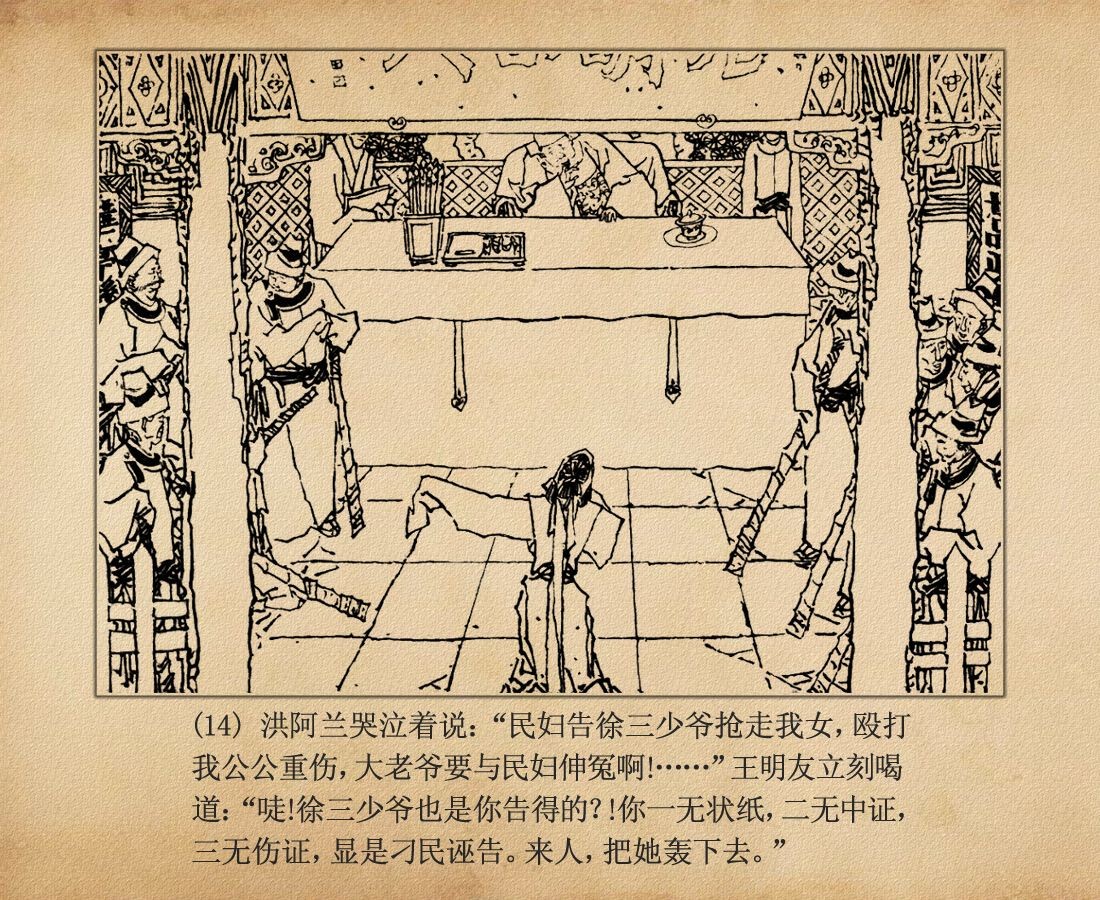 (14) 洪阿兰哭泣着说：“民妇告徐三少爷抢走我女，殴打
我公公重伤，大老爷要与民妇伸冤啊！……”王明友立刻喝
道：“哇！徐三少爷也是你告得的？！你一无状纸，二无中证，
三无伤证，显是刁民诬告。来人，把她轰下去。”